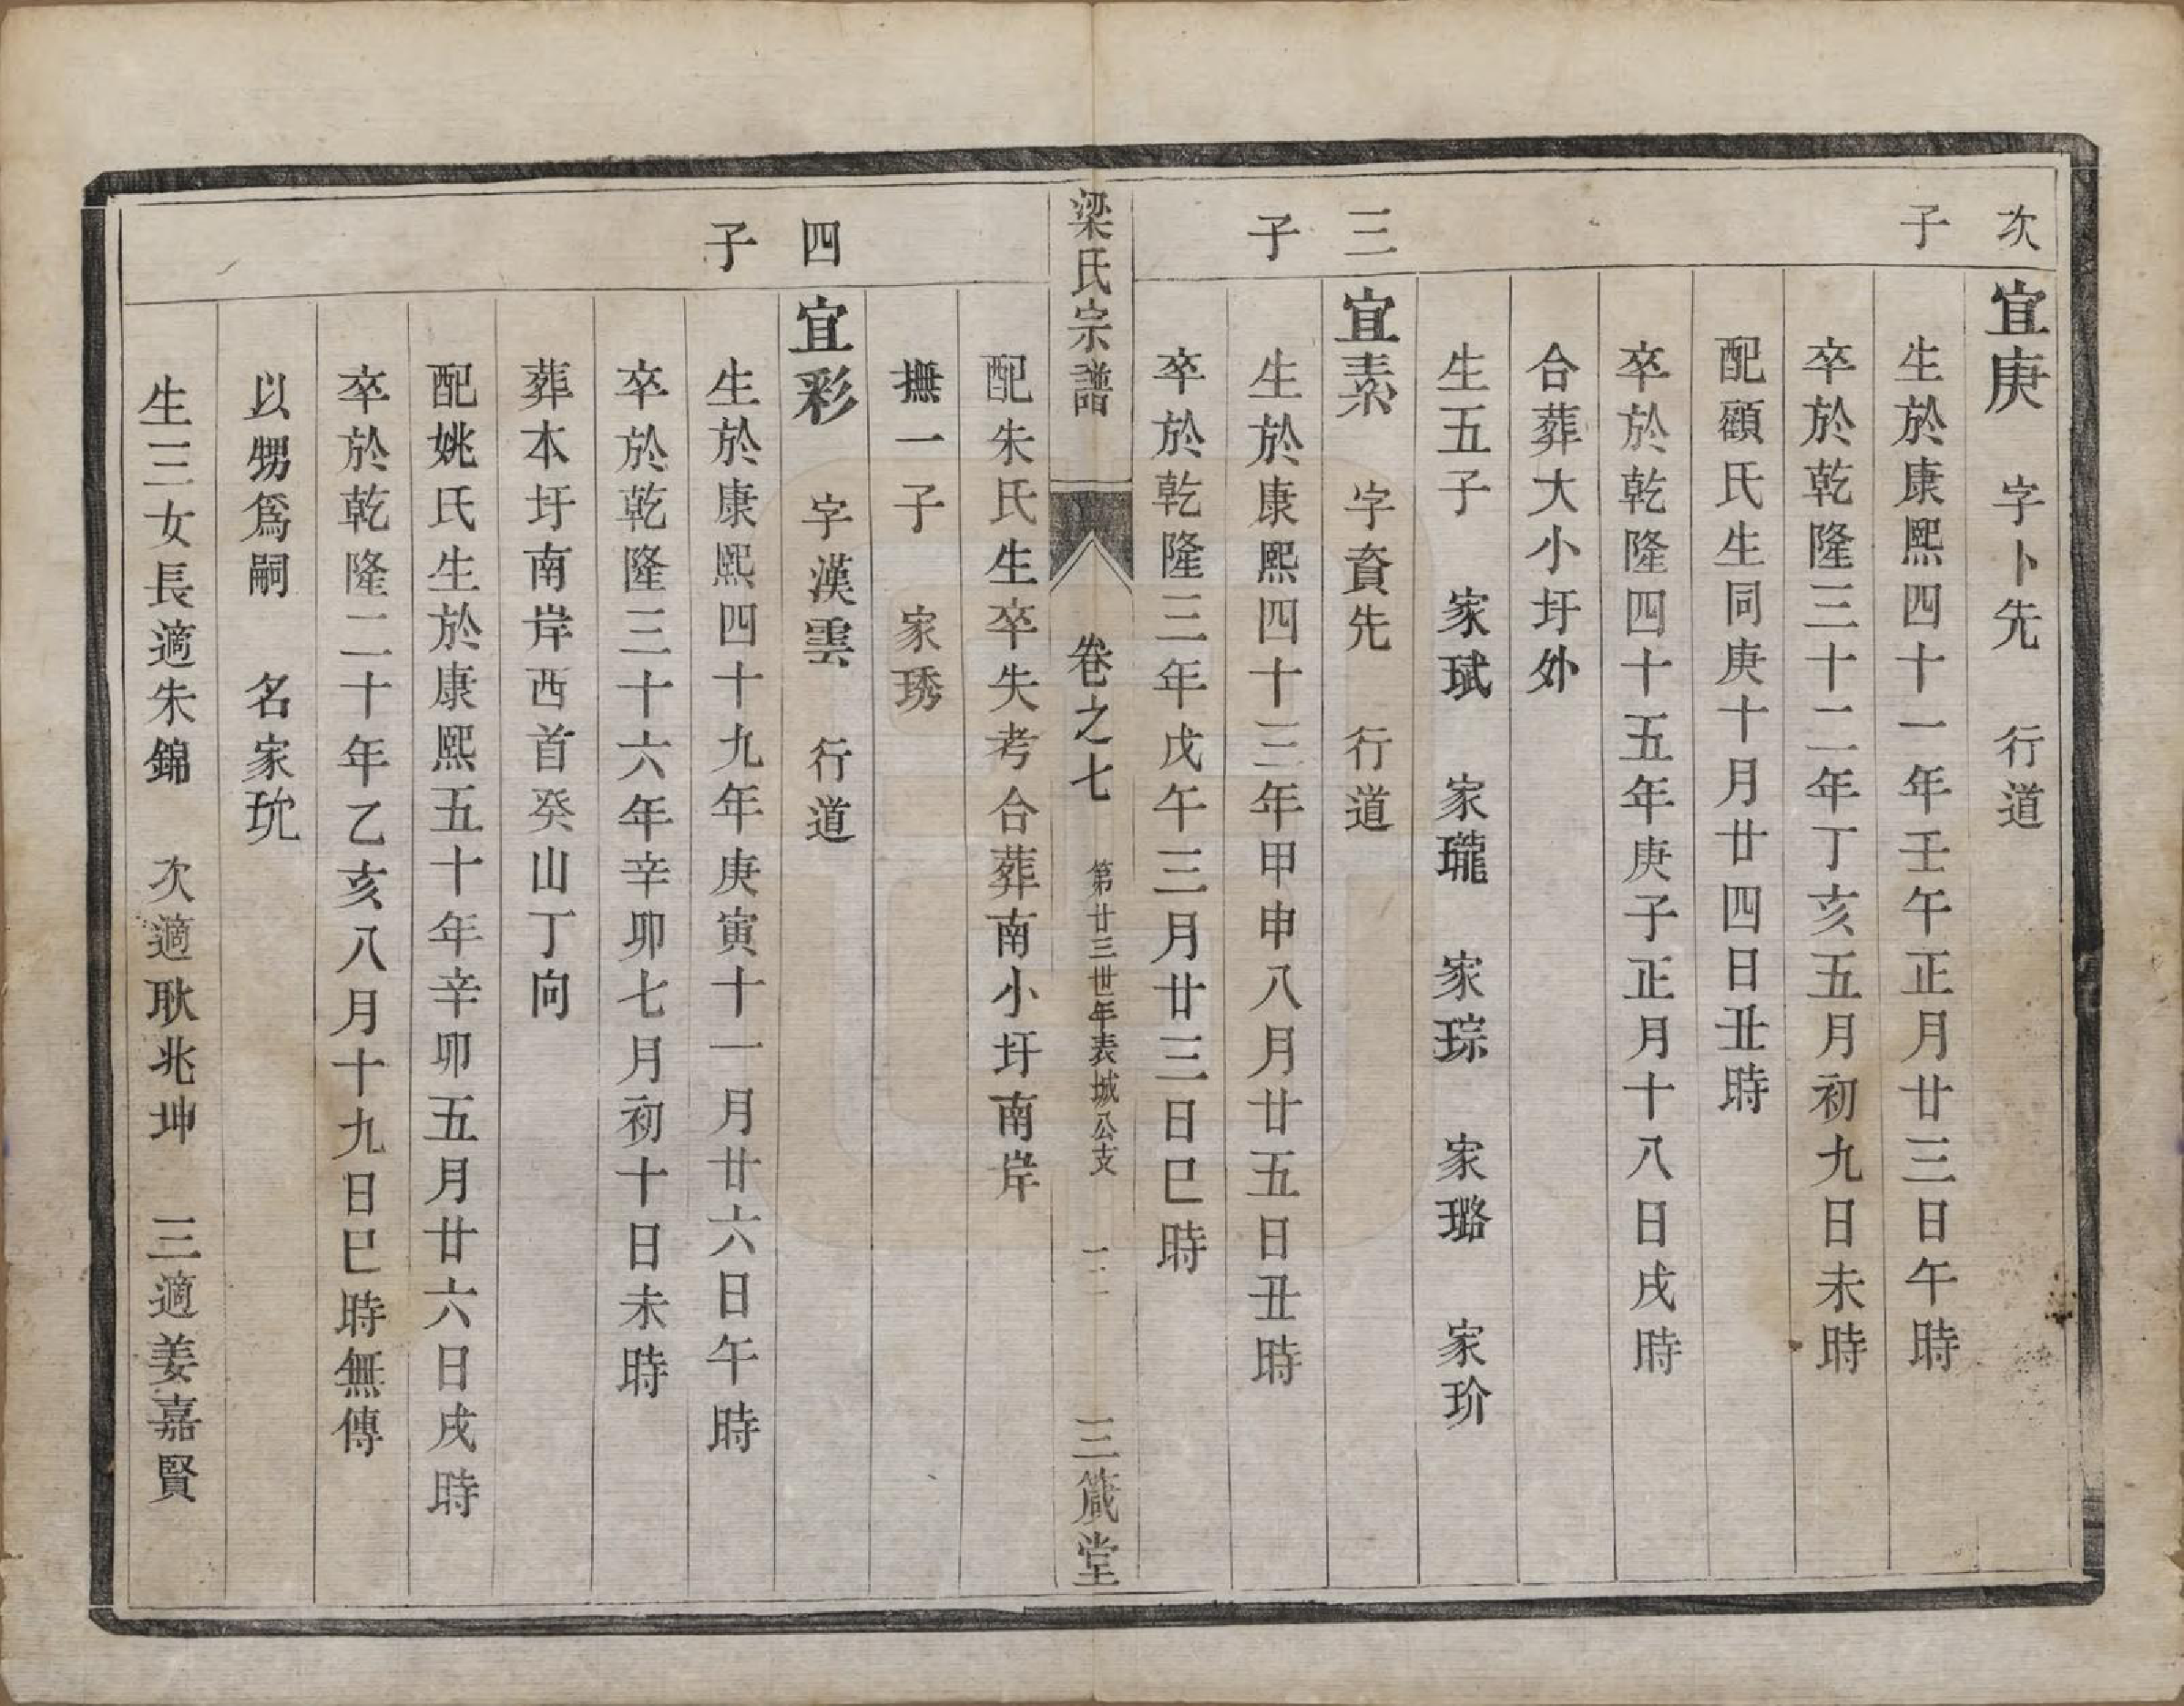 次子
宜庚　字卜先　行道
生於康熙四十一年壬午正月廿三日午時
卒於乾隆三十二年丁亥五月初九日未時
配顧氏生同庚十月廿四日丑時
卒於乾隆四十五年庚子正月十八日戌時
合葬大小圩外
生五子　家珷　家瓏　家琮　家璐　家玠
三子
宜素　字賁先　行道
生於康熙四十三年甲申八月廿五日丑時
卒於乾隆三年戊午三月廿三日巳時
梁氏宗譜　卷之七　第廿三世年表城公支　二　三箴堂
配朱氏生卒失考合葬南小圩南岸
撫一子　家琇
四子
宜彩　字漢雲　行道
生於康熙四十九年庚寅十一月廿六日午時
卒於乾隆三十六年辛卯七月初十日未時
葬本圩南岸西首癸山丁向
配姚氏生於康熙五十年辛卯五月廿六日戌時
卒於乾隆二十年乙亥八月十九日巳時無傳
以甥爲嗣　名家玧
生三女長適朱錦　次適耿兆坤　三適姜嘉賢